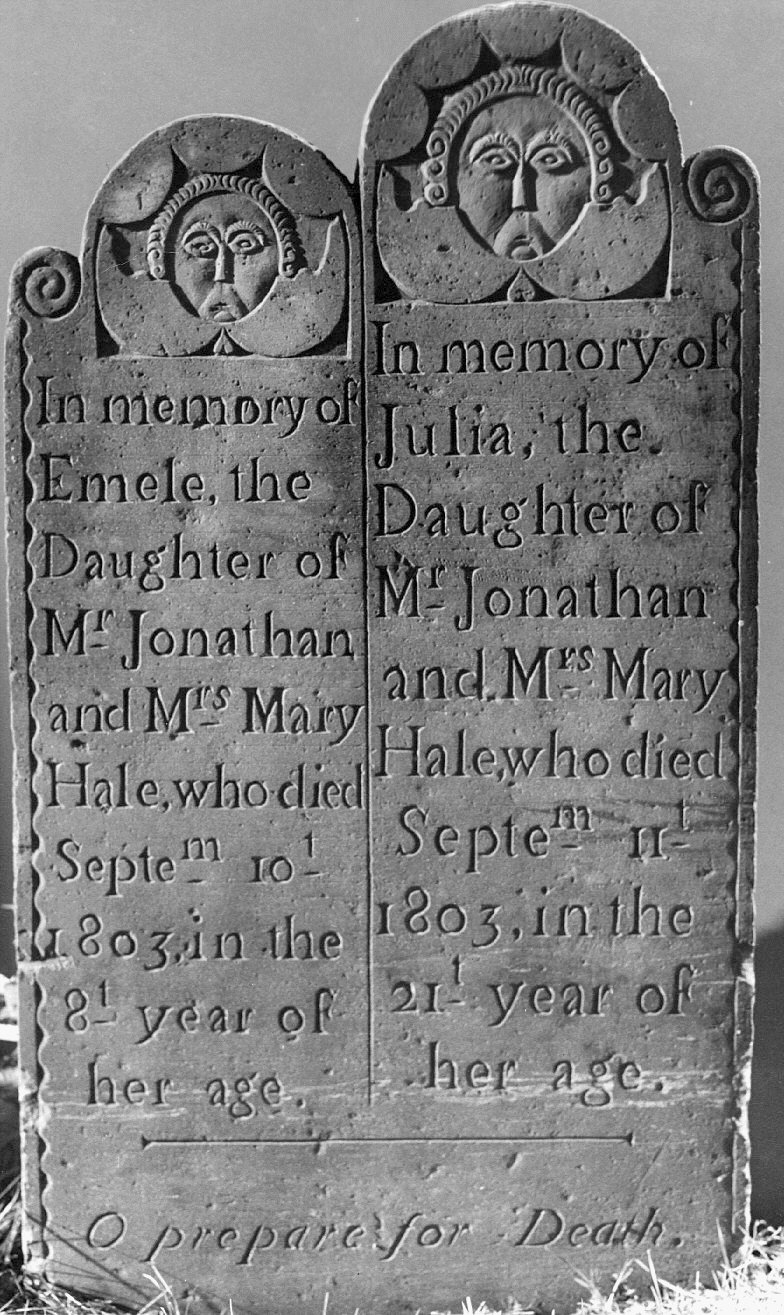 In memory of
Emele, the
Daughter of
Mr Jonathan
and Mrs Mary
Hale, who died
Septem 10t
1803, in the
8t year of
her age.
In memory of
Julia, the
Daughter of
Mr Jonathan
and Mrs Mary
Hale, who died
Septem 11t
1803, in the
21t year of
her age.
O prepare for Death.